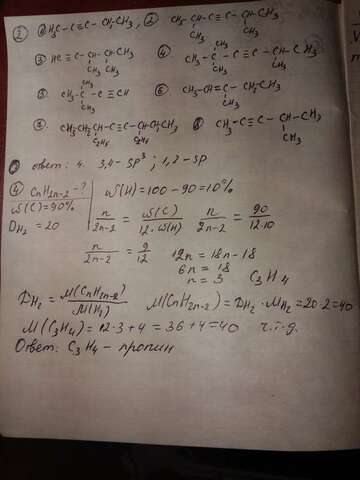 ② ① H₃C-C≡C-CH₂-CH₃, ② CH₃-CH-C≡C-CH-CH₃
CH₃ CH₃
③ HC≡C-CH-CH-CH₃ ④
CH₃ CH₃
CH₃
CH₃-C-C≡C-CH-CH₃
CH₃ CH₃
CH₃
⑤ CH₃-C-C≡CH
CH₃
⑥ CH₃-CH=C-CH₂-CH₃
CH₃
⑦ CH₃CH₂CH-C≡C-CHCH₂CH₃
C₂H₅ C₂H₅
⑧ CH₃-C≡C-CH-CH₃
CH₃
ответ: 4. 3,4-sp³; 1,2-sp
④ CnH2n-2-? ω(H)=100-90=10%
ω(C)=90%
DH₂=20
n/2n-2 = ω(C)/12·ω(H) n/2n-2 = 90/12·10
n/2n-2 = 9/12 12n=18n-18
6n=18
n=3 C₃H₄
DH₂=M(CnH2n-2)/M(H₂) M(CnH2n-2)=DH₂·MH₂=20·2=40
M(C₃H₄)=12·3+4=36+4=40 ч.т.д.
Ответ: C₃H₄-пропин